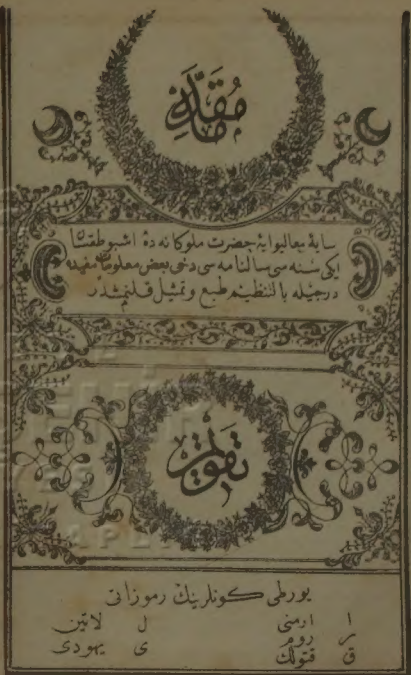 مقدمه
سایهٔ معالیوایهٔ حضرت ملوکانه ده اشبو طقسان
ایکی سنه سی سالنامه سی دخی بعض معلومات مفیده
درجیله بالتنظیم طبع و تمثیل قلنمشدر
تقویم
یورطی کونلرینك رموزاتی
ا ارمنی ل لاتین
ر روم ی یهودی
ق قتولك